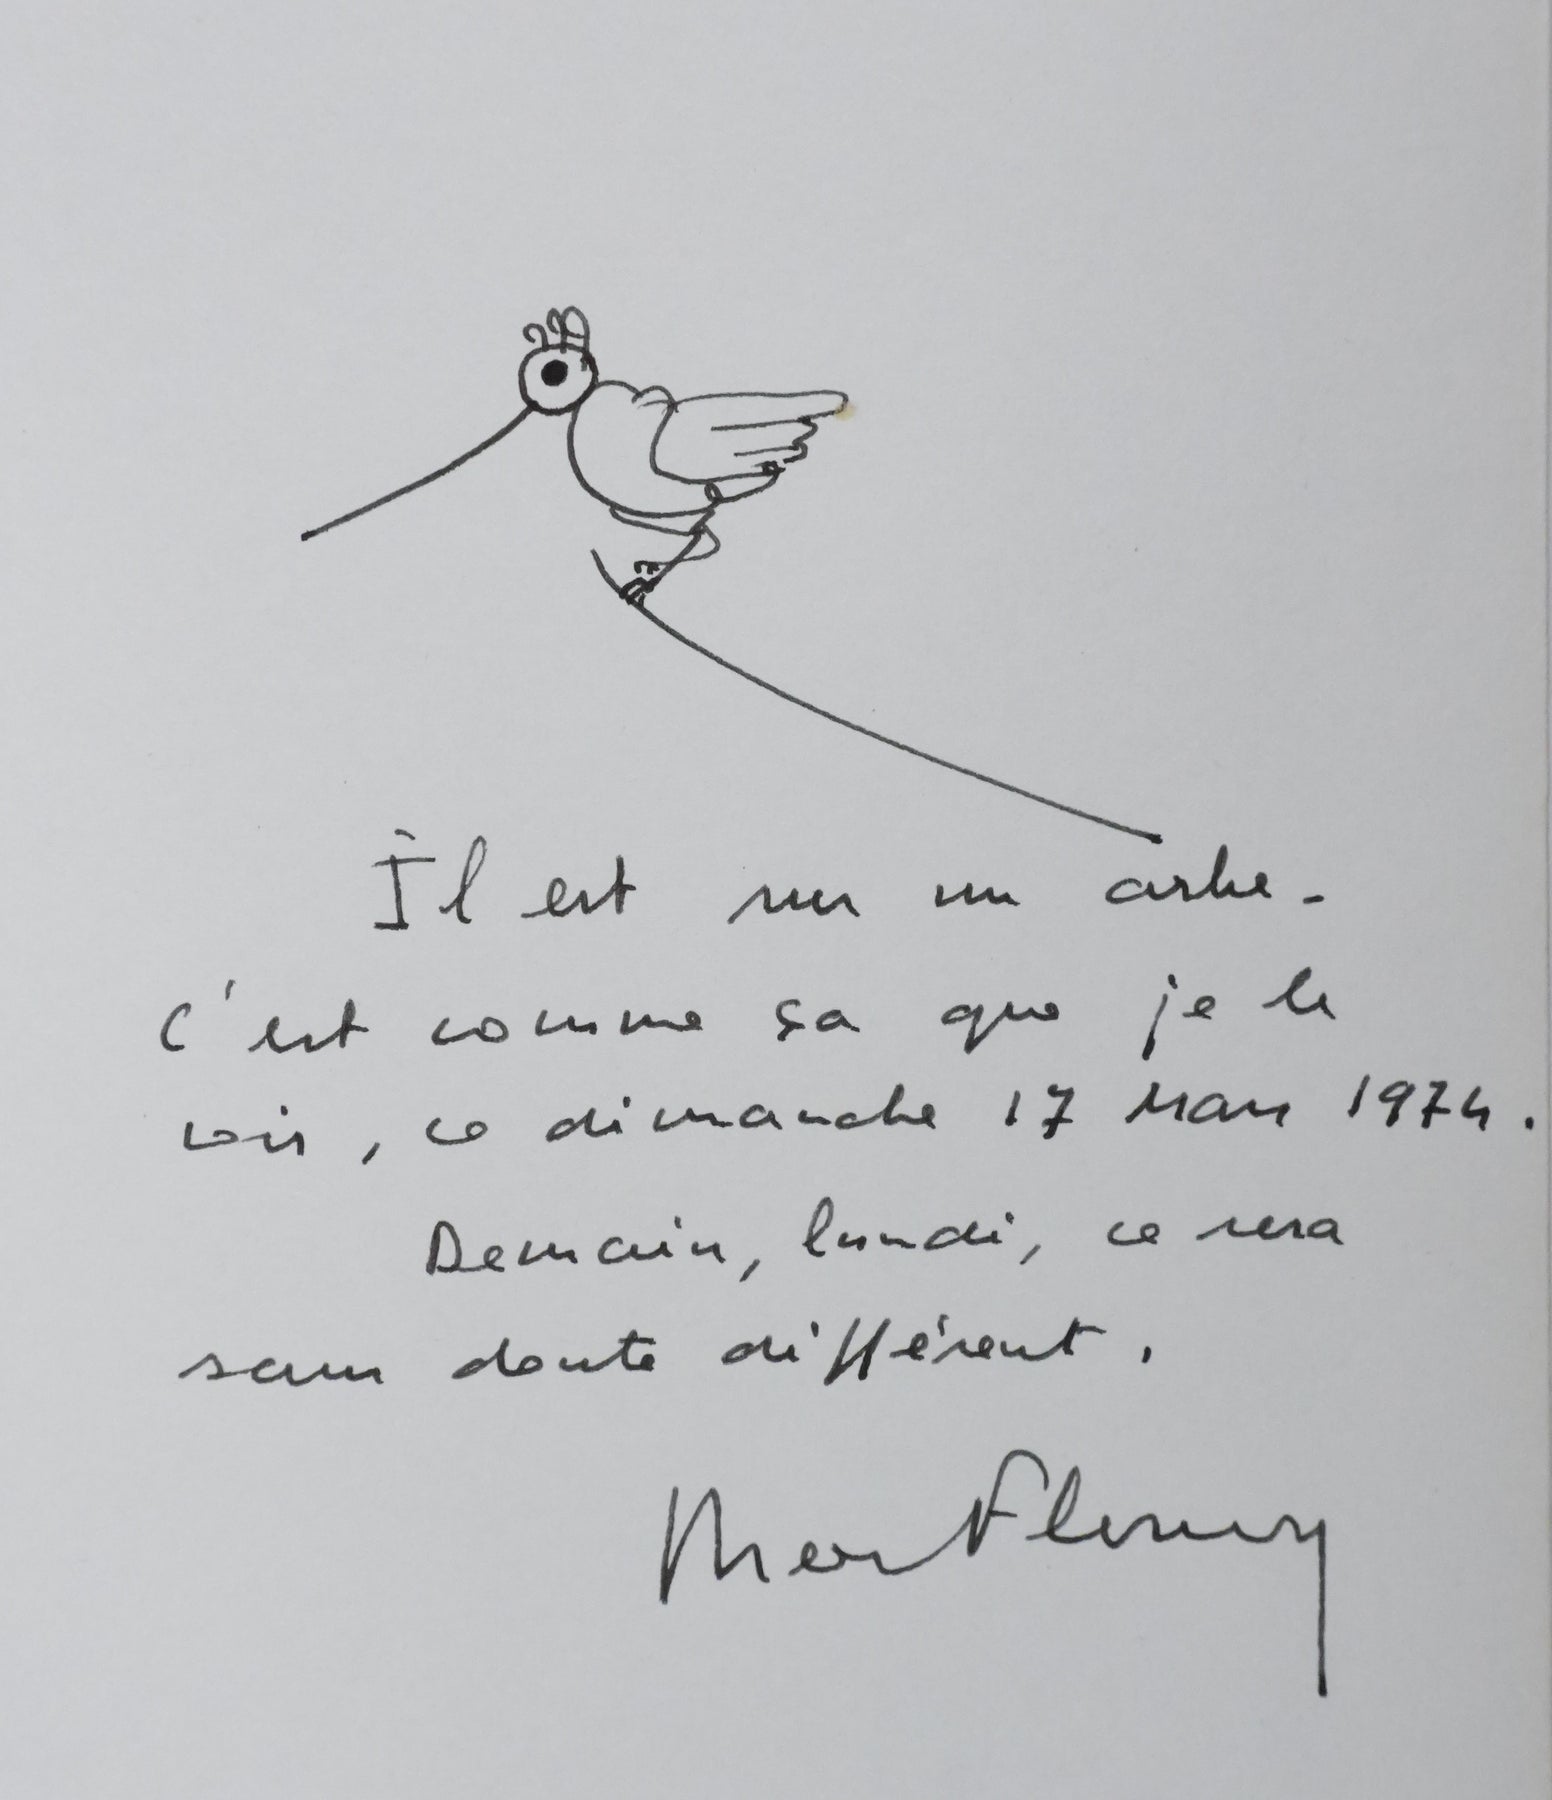 Il est sur un arbre.
C'est comme ça que je le
vois, ce dimanche 17 Mars 1974.
Demain, lundi, ce sera
sans doute différent.